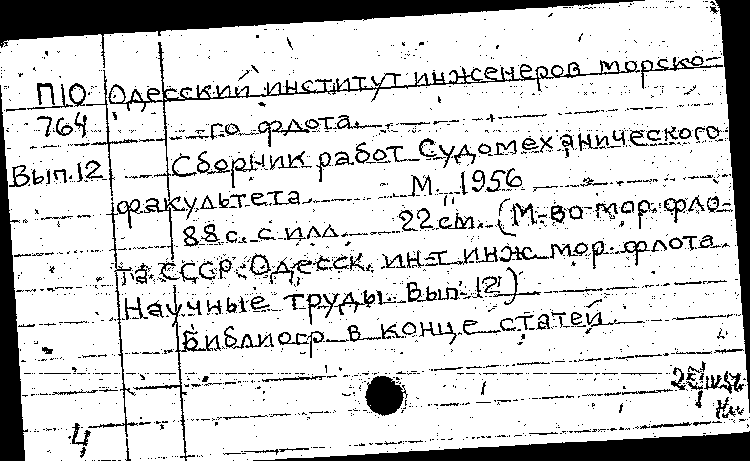 П10 Одесский институт инженеров морско-
764 го флота.
Вып.12 Сборник работ Судомеханического
факультета. М., 1956
88 с. с илл. 22 см. (М-во мор. фло-
та СССР. Одесск. ин-т инж мор. флота.
Научные труды. Вып. 12)
Библиогр. в конце статей.
4